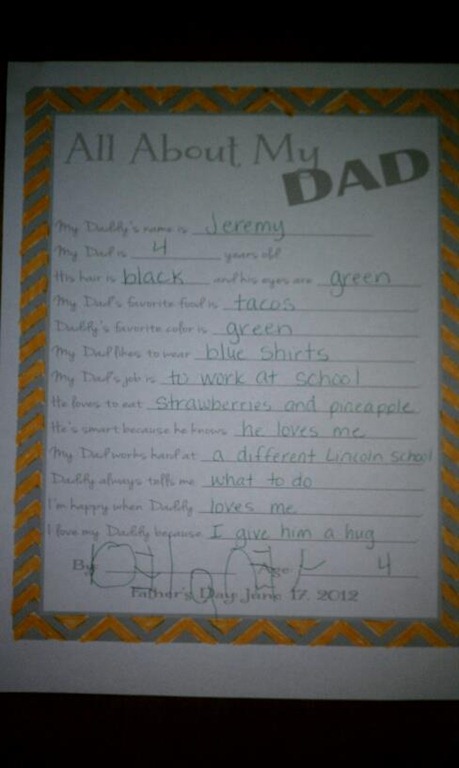 All About My
DAD
My Daddy's name is Jeremy
My Dad is 4 years old
His hair is black and his eyes are green
My Dad's favorite food is tacos
Daddy's favorite color is green
My Dad likes to wear blue shirts
My Dad's job is to work at school
He loves to eat strawberries and pineapple
He's smart because he knows he loves me
My Dad works hard at a different Lincoln school
Daddy always tells me what to do
I'm happy when Daddy loves me
I love my Daddy because I give him a hug
By Age 4
Father's Day June 17, 2012